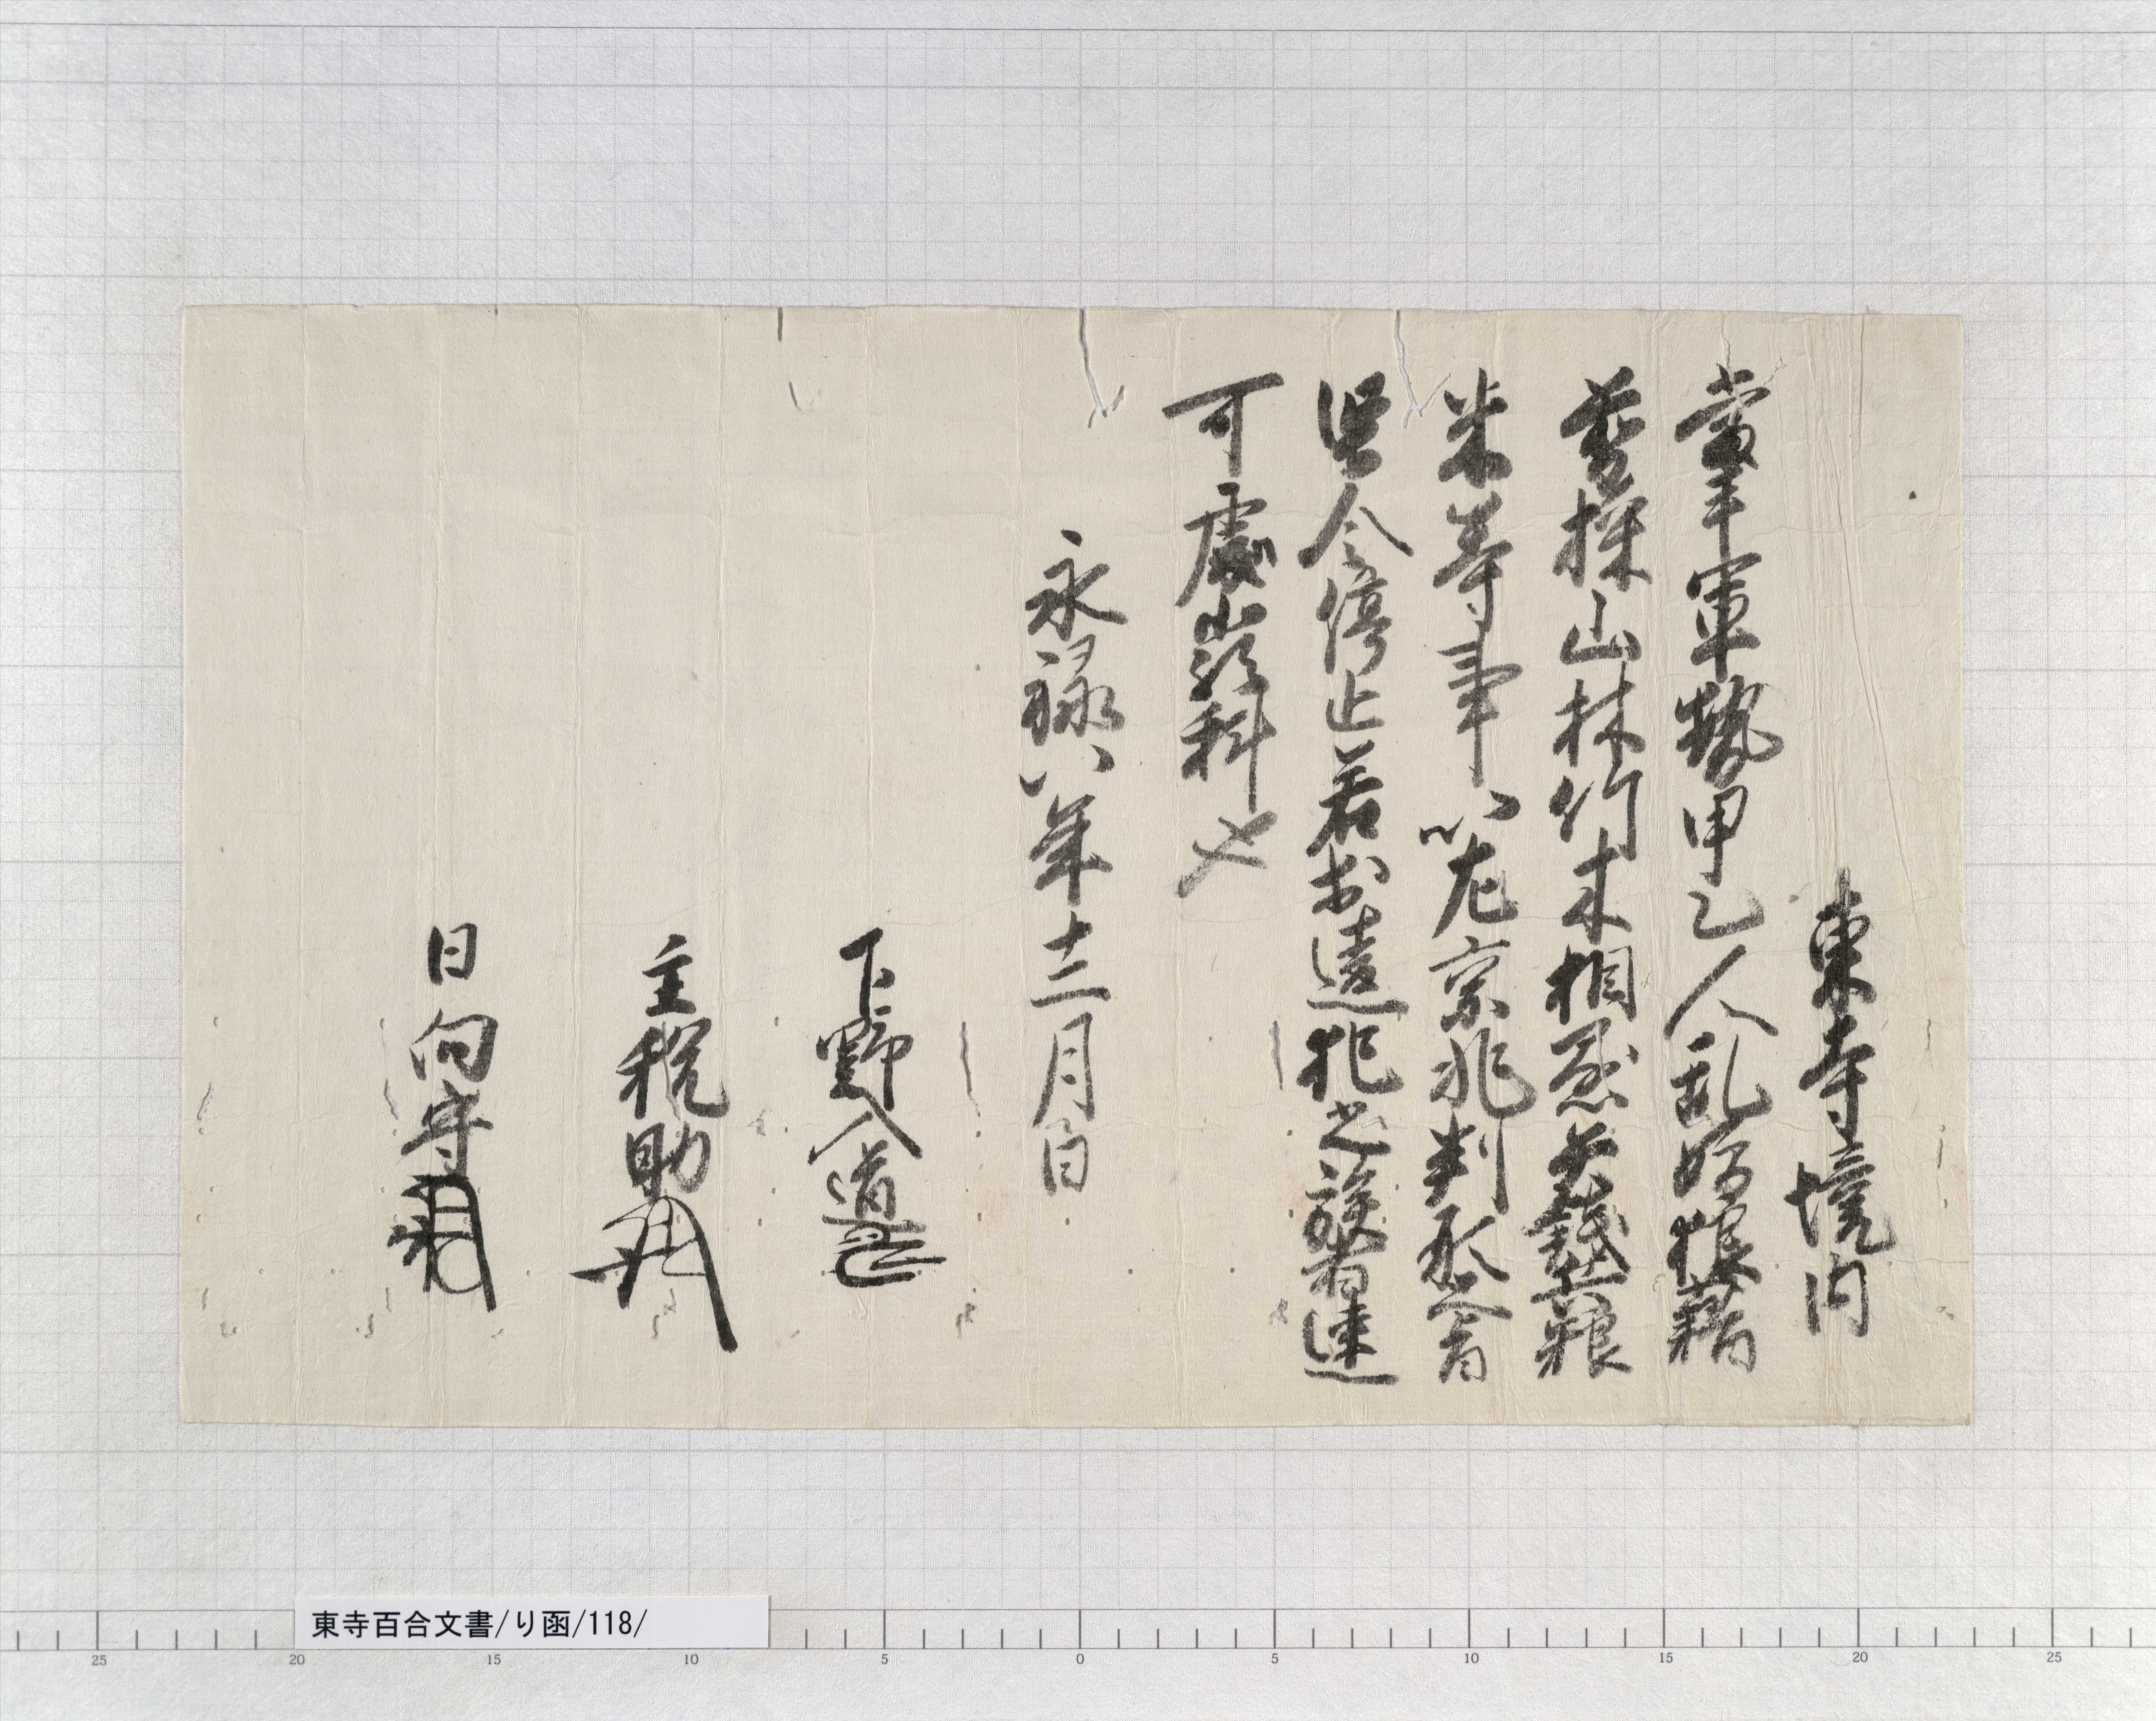 東寺境内
當手軍勢甲乙人乱妨狼藉
剪採山林竹木相懸矢銭兵粮
米等事以左京兆判形旨
堅令停止若於違犯之族者速
可處嚴科也
永禄八年十二月日
下野入道
主税助
日向守
東寺百合文書/り函/118/
25 20 15 10 5 0 5 10 15 20 25